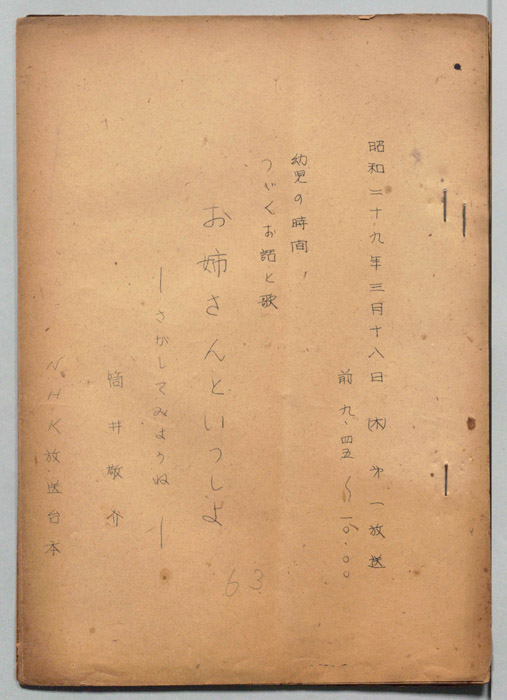 昭和二十九年三月十八日(木)第一放送
前九.四五〜一〇.〇〇
幼児の時間
つづくお話と歌
お姉さんといっしょ
ーさがしてみようねー
筒井敬介
NHK放送台本
63